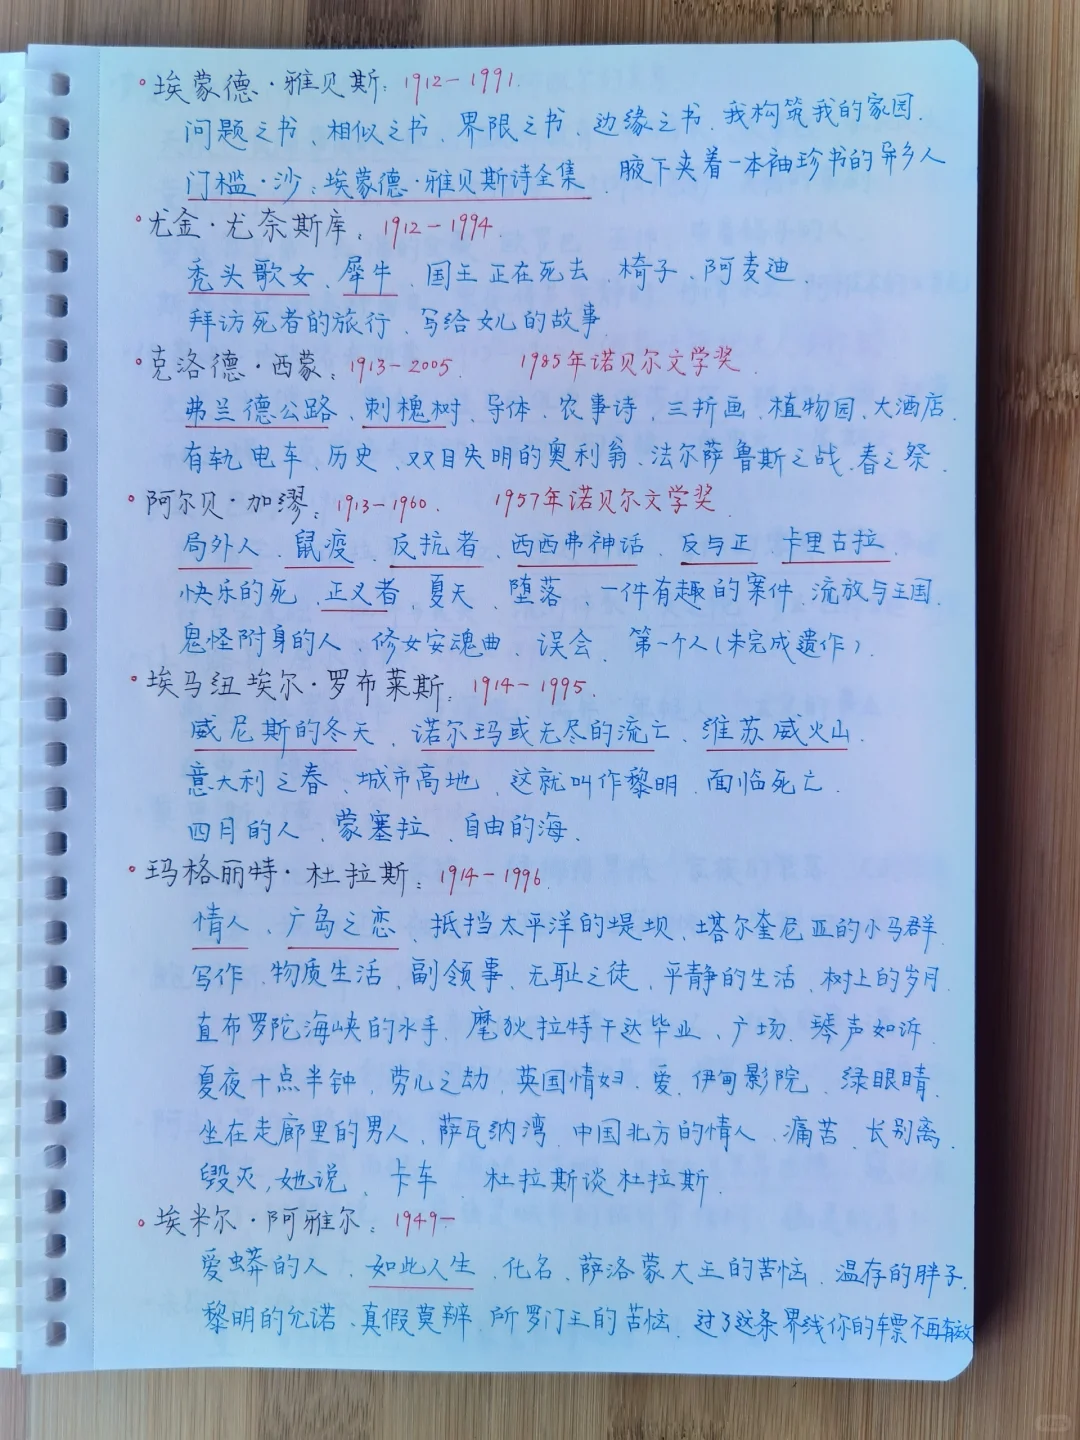 •埃蒙德·雅贝斯：1912－1991.
问题之书、相似之书、界限之书、边缘之书、我构筑我的家园.
门槛·沙：埃蒙德·雅贝斯诗全集、腋下夹着一本袖珍书的异乡人
•尤金·尤奈斯库：1912－1994.
秃头歌女、犀牛、国王正在死去、椅子、阿麦迪、
拜访死者的旅行、写给女儿的故事.
•克洛德·西蒙：1913－2005. 1985年诺贝尔文学奖.
弗兰德公路、刺槐树、导体、农事诗、三折画、植物园、大酒店.
有轨电车、历史、双目失明的奥利翁、法尔萨鲁斯之战、春之祭.
•阿尔贝·加缪：1913－1960. 1957年诺贝尔文学奖.
局外人、鼠疫、反抗者、西西弗神话、反与正、卡里古拉、
快乐的死、正义者、夏天、堕落、一件有趣的案件、流放与王国.
鬼怪附身的人、修女安魂曲、误会、第一个人(未完成遗作).
•埃马纽埃尔·罗布莱斯：1914－1995.
威尼斯的冬天、诺尔玛或无尽的流亡、维苏威火山.
意大利之春、城市高地、这就叫作黎明、面临死亡.
四月的人、蒙塞拉、自由的海.
•玛格丽特·杜拉斯：1914－1996.
情人、广岛之恋、抵挡太平洋的堤坝、塔尔奎尼亚的小马群.
写作、物质生活、副领事、无耻之徒、平静的生活、树上的岁月.
直布罗陀海峡的水手、麾狄拉特干达毕业、广场、琴声如诉.
夏夜十点半钟、劳儿之劫、英国情妇、爱、伊甸影院、绿眼睛.
坐在走廊里的男人、萨瓦纳湾、中国北方的情人、痛苦、长别离.
毁灭，她说、卡车、杜拉斯谈杜拉斯.
•埃米尔·阿雅尔：1949－
爱蟒的人、如此人生、化名、萨洛蒙大王的苦恼、温存的胖子.
黎明的允诺、真假莫辨、所罗门王的苦恼、过了这条界线你的车票不再有效